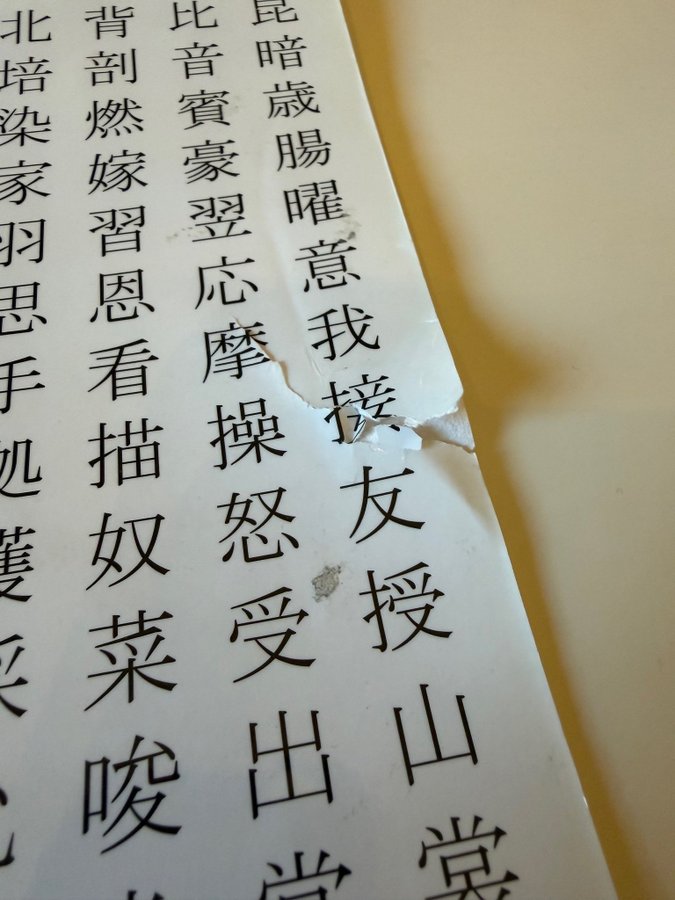 北背比昆
培剖音暗
染燃賓歳
家嫁豪腸
羽習翌曜
思恩応意
手看摩我
描操接
奴怒友
菜受授
唆出山